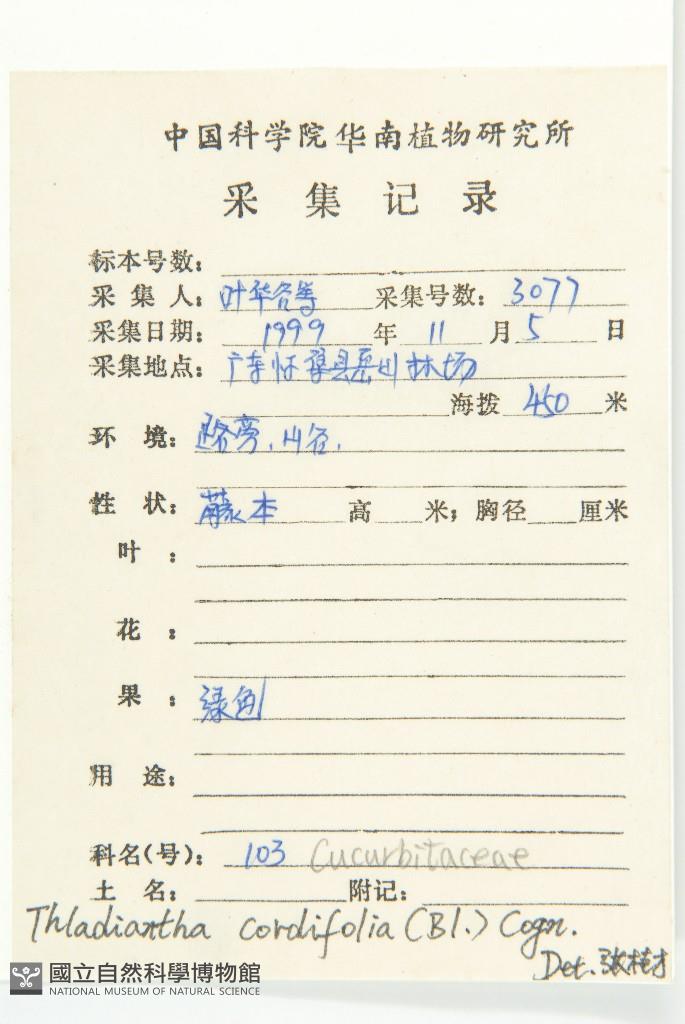 中国科学院华南植物研究所
采集记录
标本号数：
采集人：叶华谷等 采集号数：3077
采集日期：1999年11月5日
采集地点：广东怀集县岳山林场
海拨 450 米
环境：路旁，山谷，
性状：藤本 高 米；胸径 厘米
叶：
花：
果：绿色
用途：
科名(号)：103 Cucurbitaceae
土名： 附记：
Thladiantha cordifolia (Bl.) Cogn.
Det. 张桂才
國立自然科學博物館
NATIONAL MUSEUM OF NATURAL SCIENCE